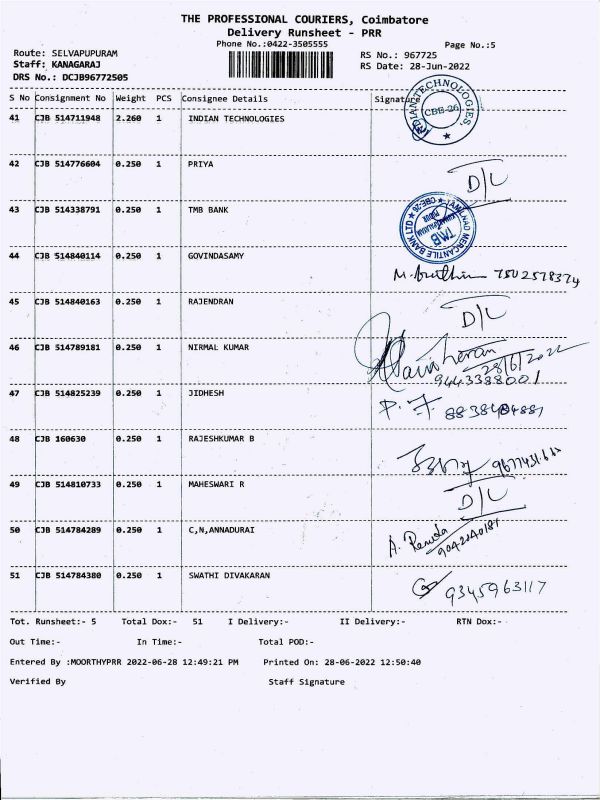 THE PROFESSIONAL COURIERS, Coimbatore
Delivery Runsheet - PRR
Phone No.:0422-3505555
Page No.:5
Route: SELVAPUPURAM
RS No.: 967725
Staff: KANAGARAJ
RS Date: 28-Jun-2022
DRS No.: DCJB96772505
S No Consignment No Weight PCS Consignee Details Signature
41 CJB 514711948 2.260 1 INDIAN TECHNOLOGIES
INDIAN TECHNOLOGIES, CBE-26
42 CJB 514776604 0.250 1 PRIYA D/L
43 CJB 514338791 0.250 1 TMB BANK
TAMILNAD MERCANTILE BANK LTD CBE-26 TMB
44 CJB 514840114 0.250 1 GOVINDASAMY 7502578374
45 CJB 514840163 0.250 1 RAJENDRAN D/L
46 CJB 514789181 0.250 1 NIRMAL KUMAR 28/6/2022
9443388001
47 CJB 514825239 0.250 1 JIDHESH
48 CJB 160630 0.250 1 RAJESHKUMAR B
49 CJB 514810733 0.250 1 MAHESWARI R D/L
50 CJB 514784289 0.250 1 C,N,ANNADURAI A. Renuka
51 CJB 514784380 0.250 1 SWATHI DIVAKARAN 9345963117
Tot. Runsheet:- 5 Total Dox:- 51 I Delivery:- II Delivery:- RTN Dox:-
Out Time:- In Time:- Total POD:-
Entered By :MOORTHYPRR 2022-06-28 12:49:21 PM Printed On: 28-06-2022 12:50:40
Verified By Staff Signature